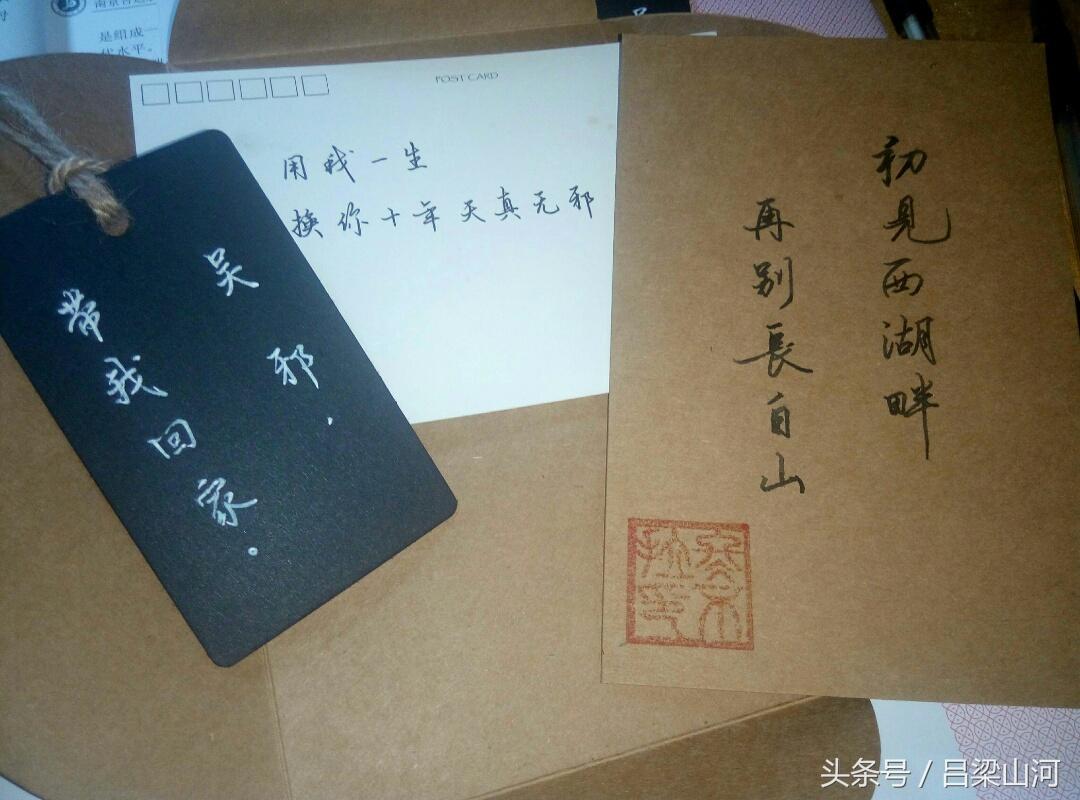 是组成一
代水平。
POST CARD
用我一生
换你十年天真无邪
吴邪,
带我回家。
初見西湖畔
再别長白山
头条号 / 吕梁山河